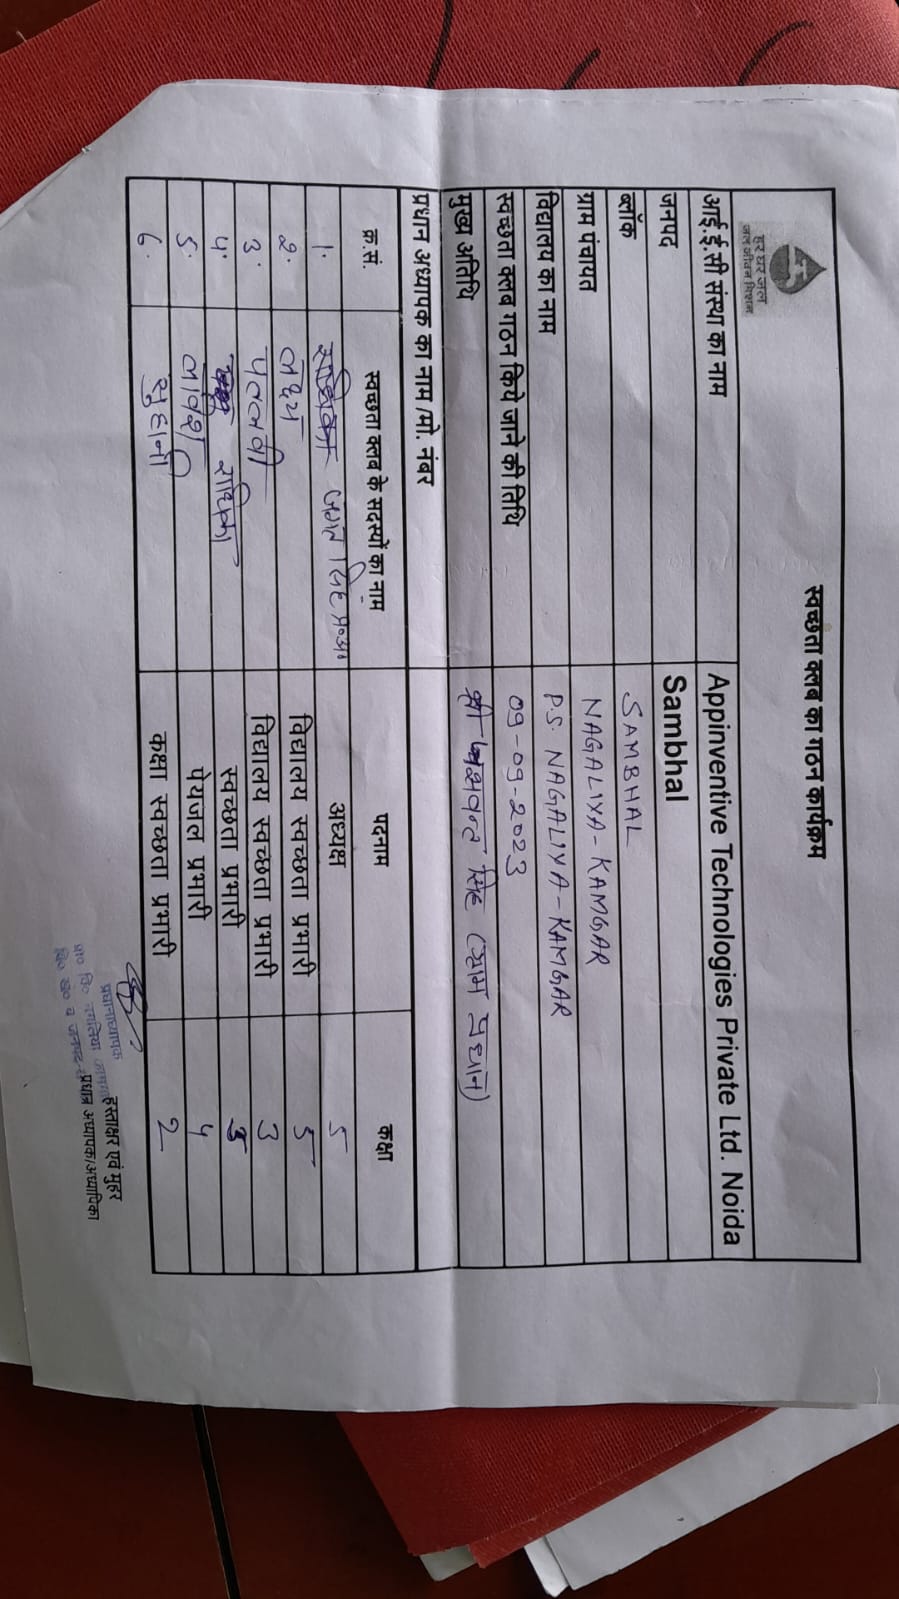 हर घर जल
जल जीवन मिशन
स्वच्छता क्लब का गठन कार्यक्रम
आई.ई.सी संस्था का नाम Appinventive Technologies Private Ltd. Noida
जनपद Sambhal
ब्लॉक SAMBHAL
ग्राम पंचायत NAGALIYA-KAMGAR
विद्यालय का नाम P.S. NAGALIYA-KAMGAR
स्वच्छता क्लब गठन किये जाने की तिथि 09-09-2023
मुख्य अतिथि श्री सिंह (ग्राम प्रधान)
प्रधान अध्यापक का नाम /मो. नंबर
क्र.सं. स्वच्छता क्लब के सदस्यों का नाम पदनाम कक्षा
1. जगत सिंह प्र०अ० अध्यक्ष 5
2. विद्यालय स्वच्छता प्रभारी 5
3. पल्लवी विद्यालय स्वच्छता प्रभारी 3
4. राधिका स्वच्छता प्रभारी
5. पेयजल प्रभारी 4
6. कक्षा स्वच्छता प्रभारी 2
प्रधानाध्यापक
हस्ताक्षर एवं मुहर
प्रधान अध्यापक/अध्यापिका